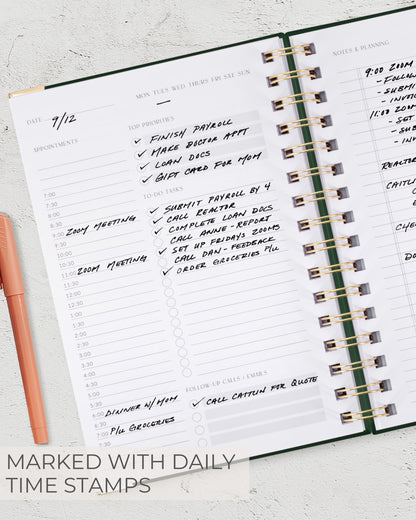 DATE 9/12
MON TUES WED THURS FRI SAT SUN
APPOINTMENTS
7:00
7:30
8:00
8:30
9:00 ZOOM MEETING
9:30
10:00
10:30
11:00 ZOOM MEETING
11:30
12:00
12:30
1:00
1:30
2:00
2:30
3:00
3:30
4:00
4:30
5:00
5:30
DINNER W/ MOM
P/U GROCERIES
TOP PRIORITIES
✓ FINISH PAYROLL
✓ MAKE DOCTOR APPT
✓ LOAN DOCS
✓ GIFT CARD FOR MOM
TO-DO TASKS
✓ SUBMIT PAYROLL BY 4
✓ CALL REALTOR
✓ COMPLETE LOAN DOCS
CALL ANNE - REPORT
✓ SET UP FRIDAYS ZOOMS
CALL DAN - FEEDBACK
✓ ORDER GROCERIES P/U
FOLLOW-UP CALLS / EMAILS
✓ CALL CAITLIN FOR QUOTE
NOTES & PLANNING
9:00 ZOOM
- FOLLOW
- SUBMIT
- INVOIC
11:00 ZOOM
- SET
- SUB
- INV
READ
CAITL
CHE
MARKED WITH DAILY
TIME STAMPS